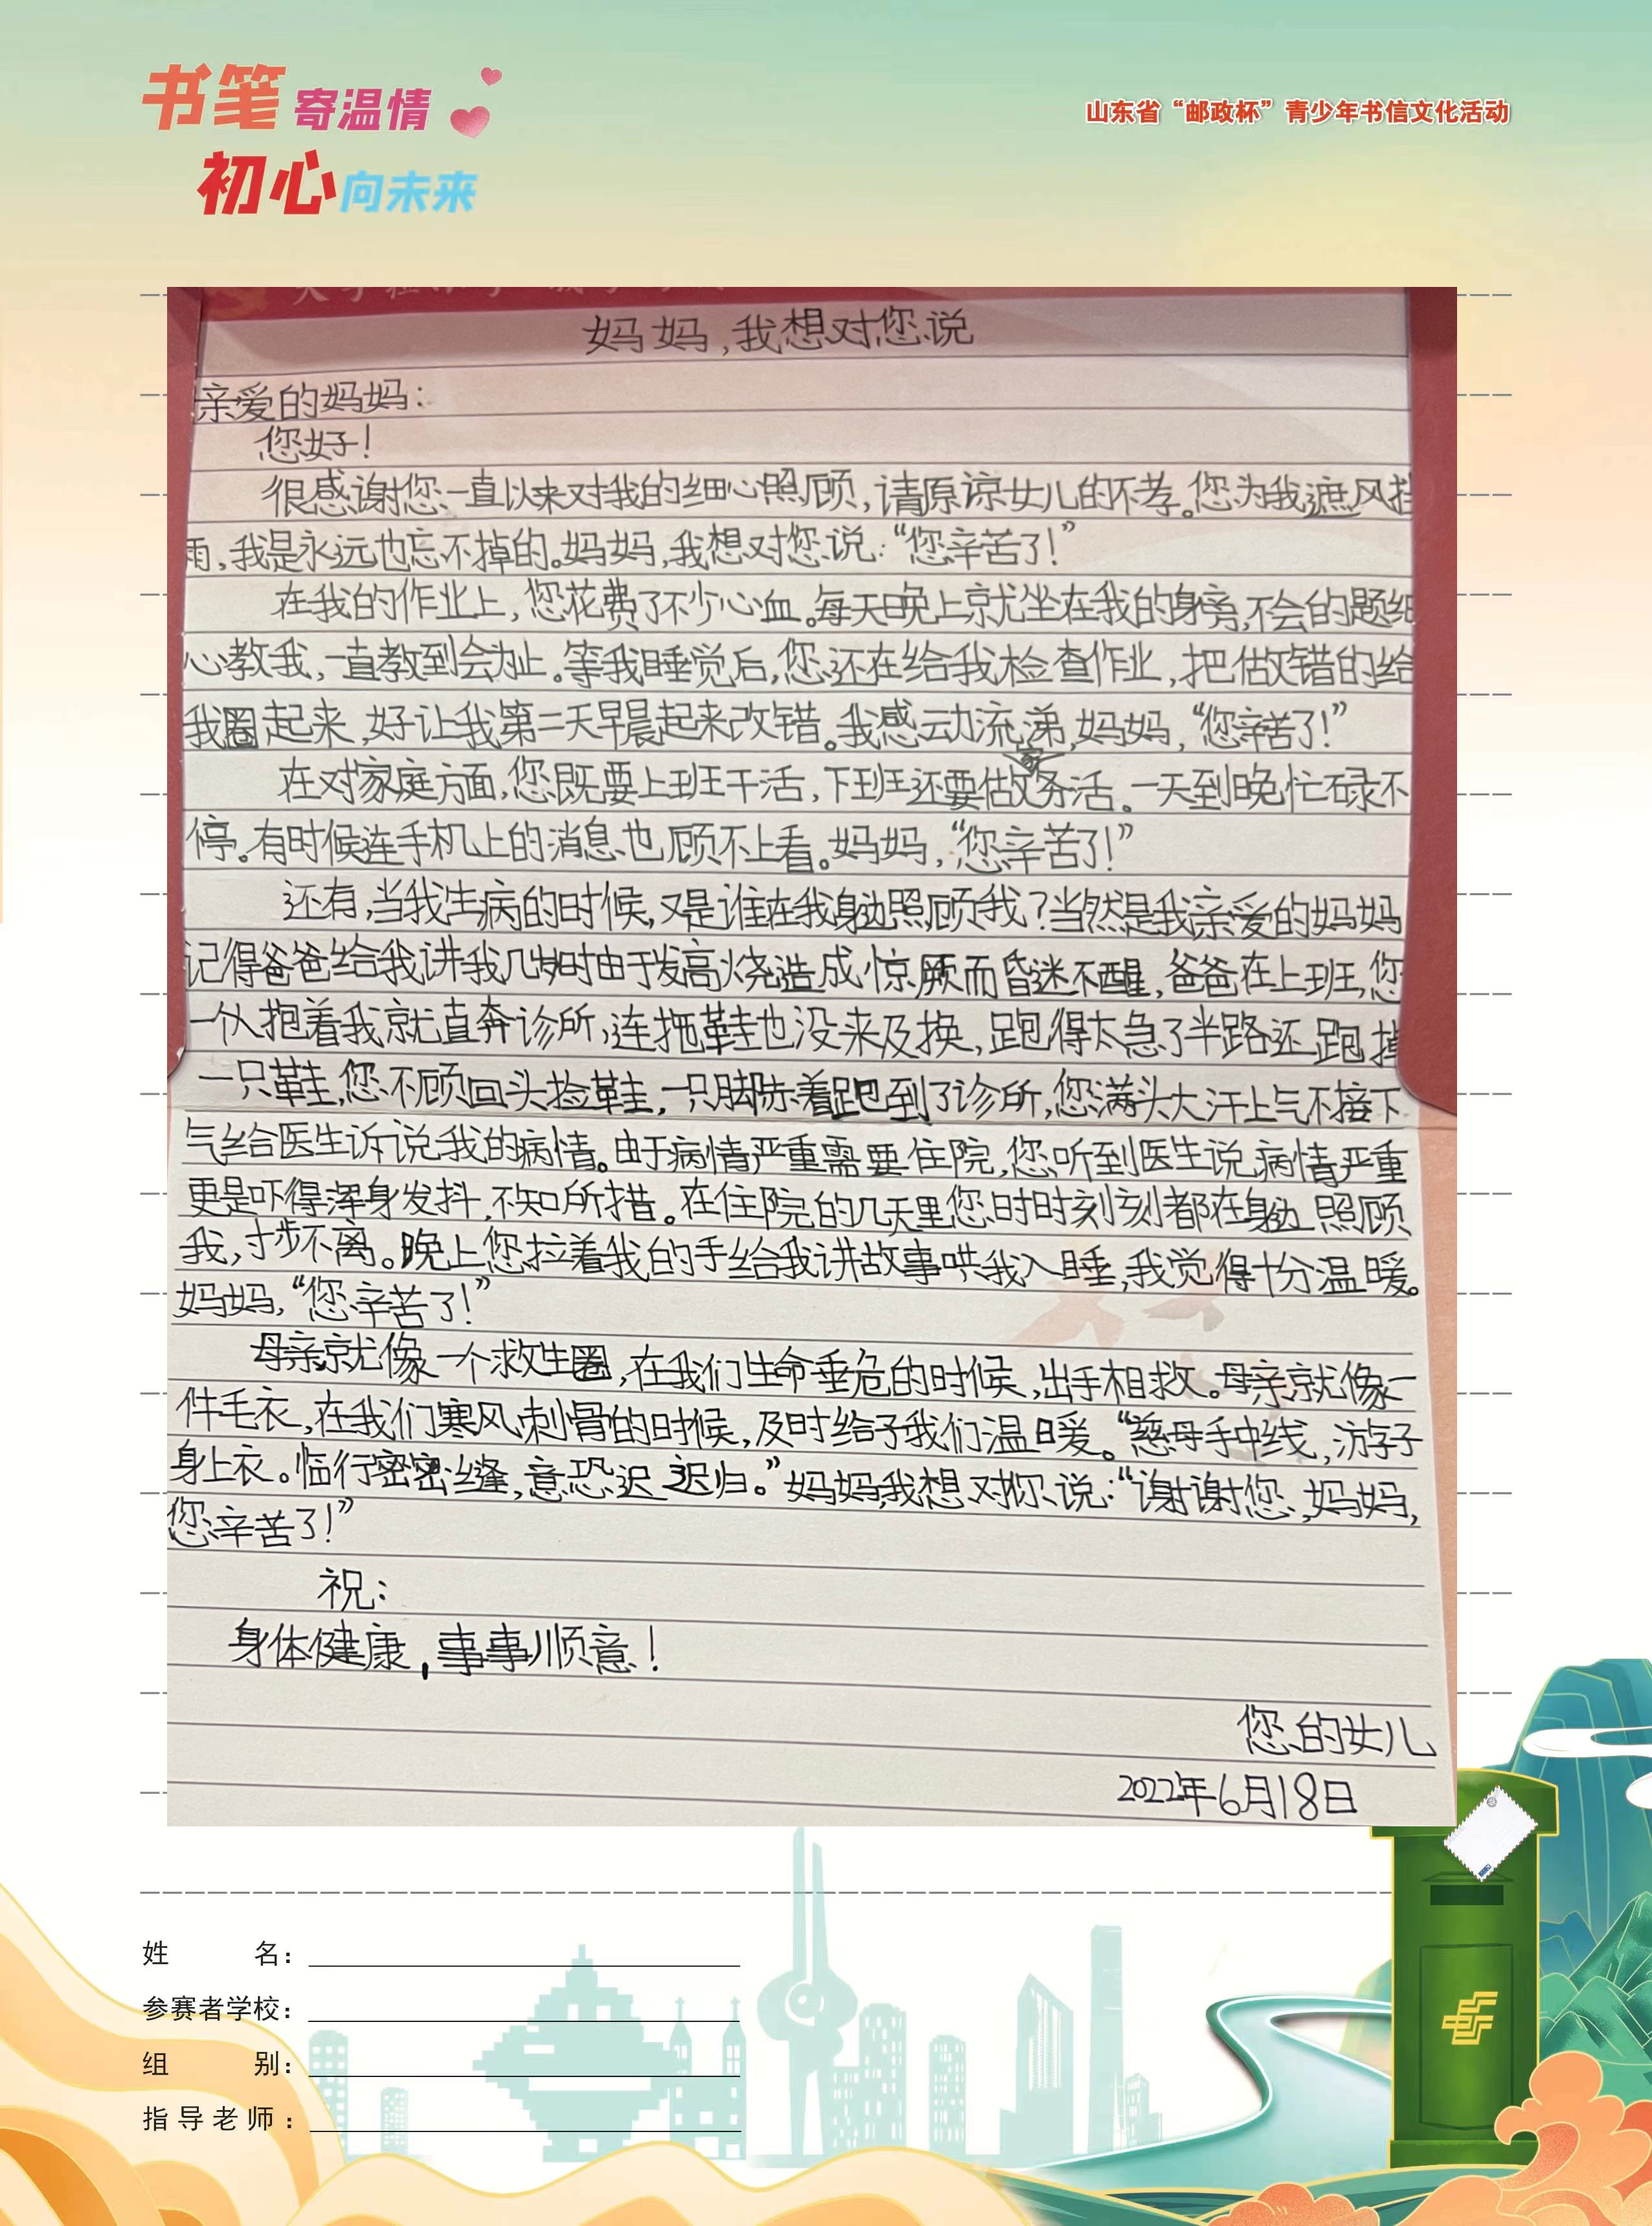 书笔寄温情
初心向未来
山东省“邮政杯”青少年书信文化活动
妈妈,我想对您说
亲爱的妈妈:
您好!
很感谢您一直以来对我的细心照顾,请原谅女儿的不孝。您为我遮风挡
雨,我是永远也忘不掉的。妈妈,我想对您说:“您辛苦了!”
在我的作业上,您花费了不少心血。每天晚上就坐在我的身旁,不会的题细
心教我,一直教到会为止。等我睡觉后,您还在给我检查作业,把做错的给
我圈起来,好让我第二天早晨起来改错。我感动流涕,妈妈,“您辛苦了!”
在对家庭方面,您既要上班干活,下班还要做家务活。一天到晚忙碌不
停。有时候连手机上的消息也顾不上看。妈妈,“您辛苦了!”
还有,当我生病的时候,又是谁在我身边照顾我?当然是我亲爱的妈妈
记得爸爸给我讲我几岁时由于发高烧造成惊厥而昏迷不醒,爸爸在上班,您
一个人抱着我就直奔诊所,连拖鞋也没来及换,跑得太急了半路还跑掉
一只鞋,您不顾回头捡鞋,一只脚赤着跑到了诊所,您满头大汗上气不接下
气给医生诉说我的病情。由于病情严重需要住院,您听到医生说病情严重
更是吓得浑身发抖,不知所措。在住院的几天里您时时刻刻都在身边照顾
我,寸步不离。晚上您拉着我的手给我讲故事哄我入睡,我觉得十分温暖。
妈妈,“您辛苦了!”
母亲就像一个救生圈,在我们生命垂危的时候,出手相救。母亲就像一
件毛衣,在我们寒风刺骨的时候,及时给予我们温暖。“慈母手中线,游字子
身上衣。临行密密缝,意恐迟迟归。”妈妈,我想对你说:“谢谢您,妈妈,
您辛苦了!”
祝:
身体健康,事事顺意!
您的女儿
2022年6月18日
姓名:
参赛者学校:
组别:
指导老师: